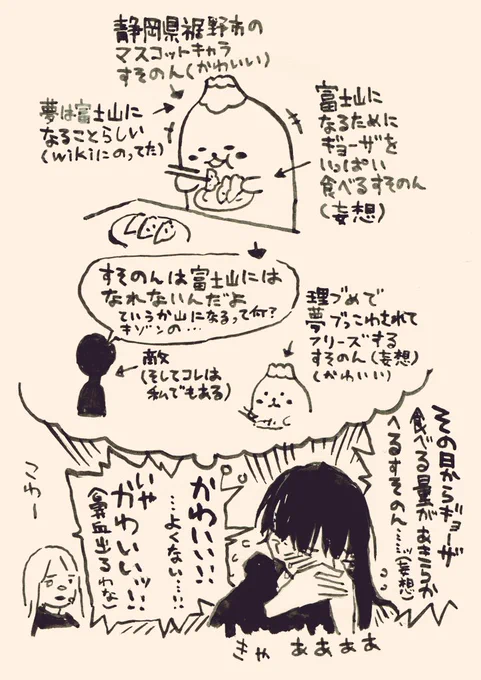 静岡県裾野市の
マスコットキャラ
すそのん(かわいい)
夢は富士山に
なることらしい
(wikiにのってた)
富士山に
なるために
ギョーザを
いっぱい
食べるすそのん
(妄想)
すそのんは富士山には
なれないんだよ
ていうか山になるって何?
キゾンの…
敵
(そしてコレは
私でもある)
理づめで
夢ブッこわされて
フリーズする
すそのん(妄想)
(かわいい)
その日からギョーザ
食べる量があきらか
へるすそのん……ッ(妄想)
かわいい!!
…よくない…!!
いや
かわいいッ!!
(鼻血出るわな)
こわー
きゃ ああああ